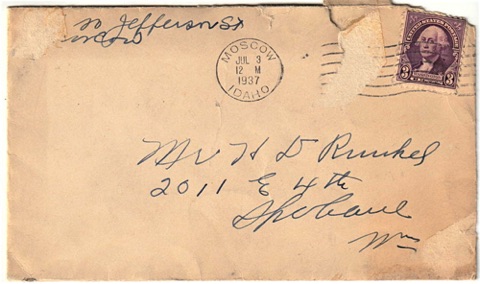 Jefferson St
MOSCOW
JUL 3
12 M
1937
IDAHO
UNITED STATES POSTAGE
3 3
Mr H D Runkel
2011 E 4th
Spokane
Wn